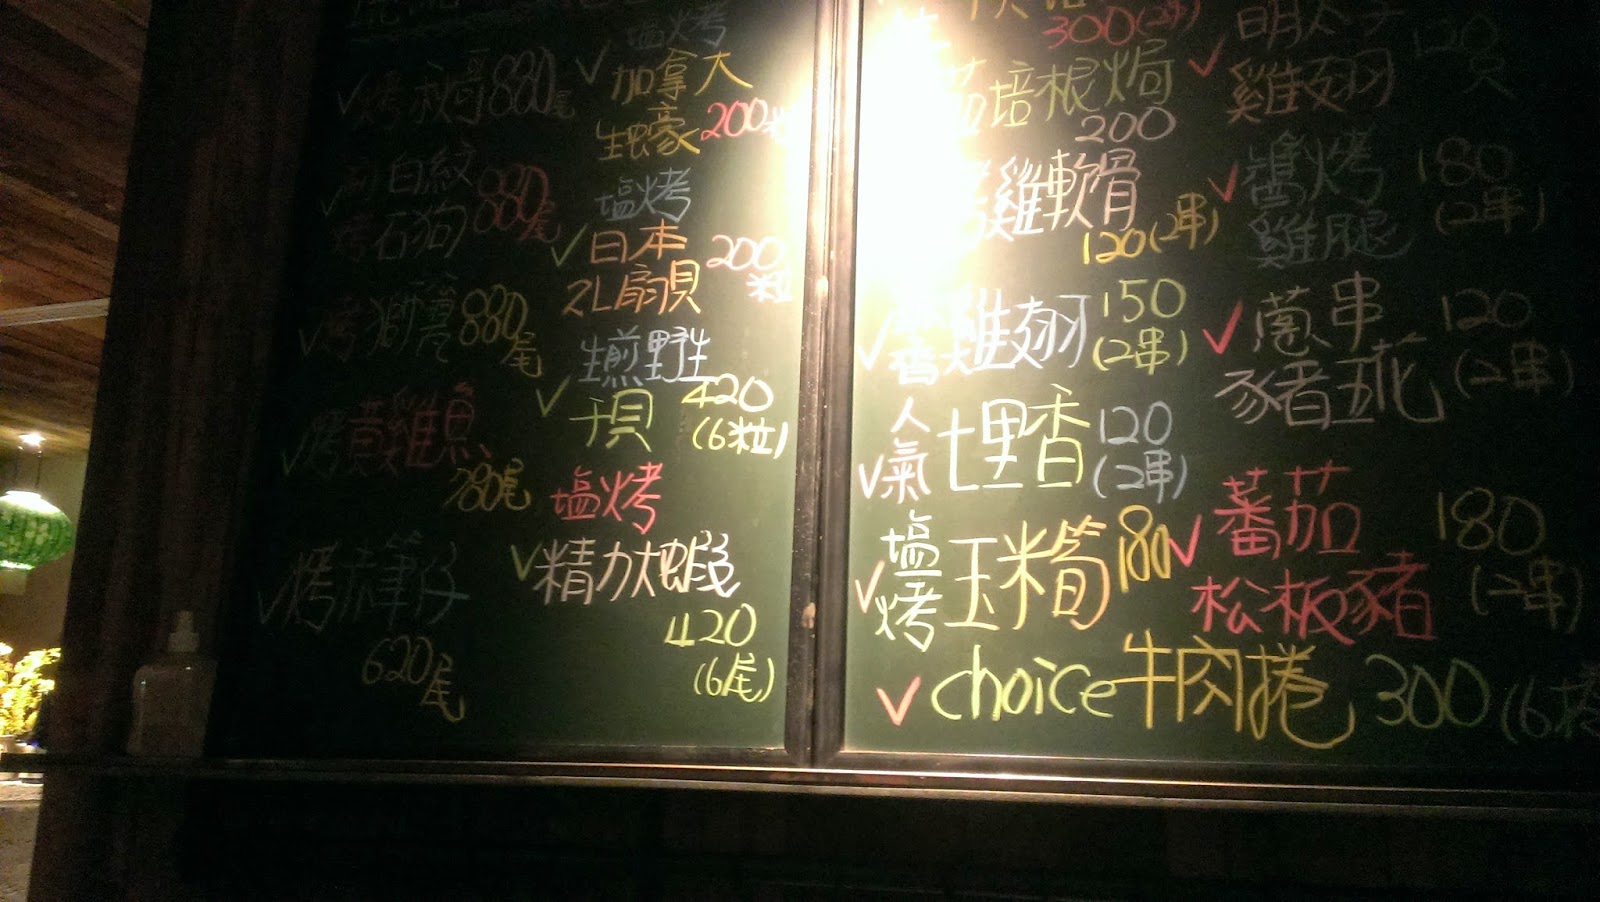 塩烤
✓烤秋哥880尾
✓加拿大
生蠔200粒
白紋
烤石狗880尾
塩烤
✓日本
2L扇貝200粒
880尾
生煎野生
✓干貝 420
(6粒)
✓烤黃雞魚
780尾
塩烤
✓精力大蝦
420
(6尾)
620尾
300(2串)
培根焗
200
雞軟骨
120(2串)
✓ 香雞翅 150
(2串)
✓人氣 七里香 120
(2串)
✓塩烤 玉米筍 180
✓choice牛肉捲 300(6捲
✓明太子
雞翅 120
✓醬烤
雞腿 180
(2串)
✓蔥串
豬五花 120
(2串)
✓蕃茄
松板豬 180
(2串)